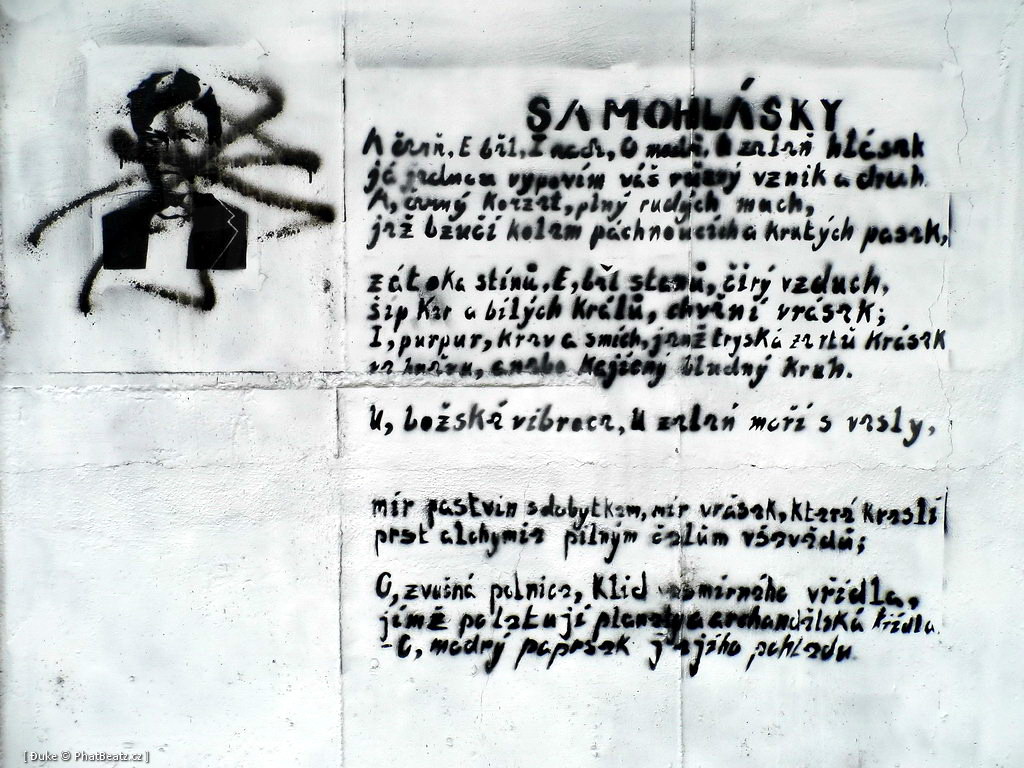 SAMOHLÁSKY
A čerň, E běl, I nach, O modř, U zeleň hlásek
já jednou vypovím váš rušný vznik a druh.
A, černý korzet, plný rudých much,
jež bzučí kolem páchnoucích a krutých pasek,
zátoka stínů, E, běl stanů, čirý vzduch,
šíp ker a bílých králů, chvění vrásek;
I, purpur, krev a smích, jenž tryská ze rtů krásek
ve hněvu, anebo kajícný bludný kruh.
U, božská vibrace, U zeleň moří s vesly,
mír pastvin s dobytkem, mír vrásek, které kreslí
prst alchymie pilným čelům vševědů;
O, zvučná polnice, klid vesmírného vřídla,
jímž poletují planety a archandělská křídla
- O, modrý paprsek jejího pohledu.
[ Duke © PhatBeatz.cz ]